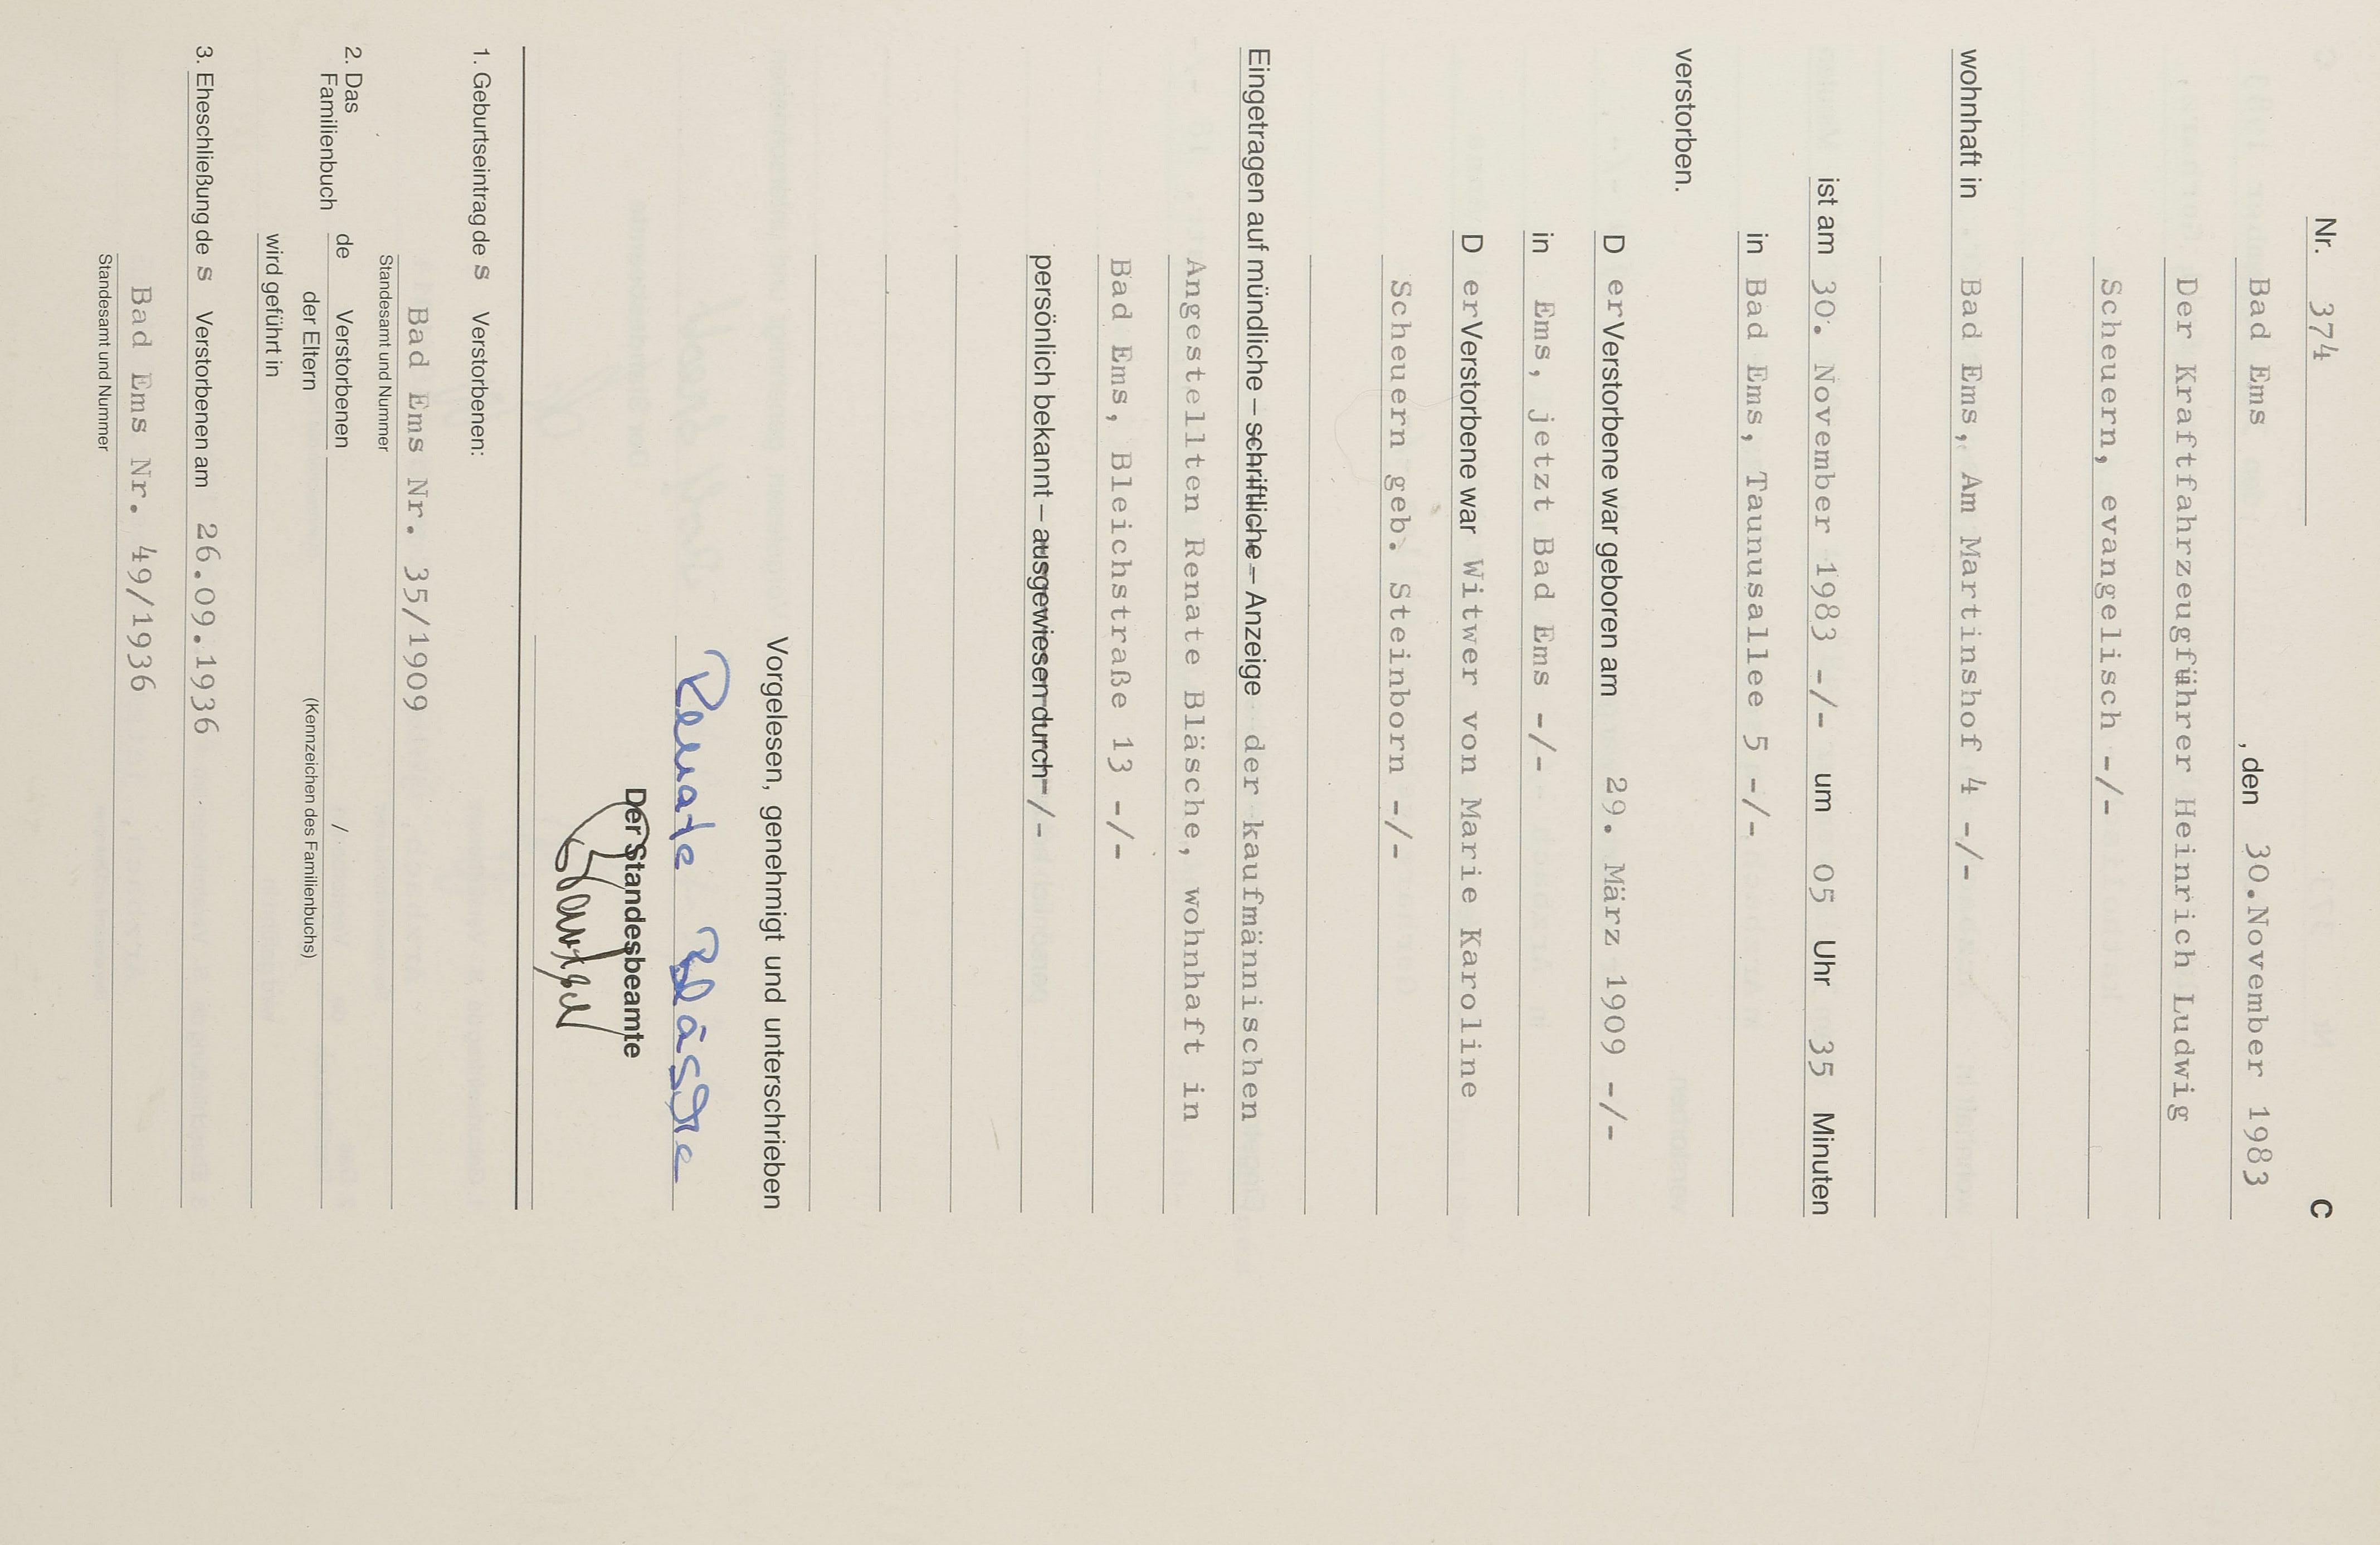 Nr. 374 C
Bad Ems , den 30.November 1983
Der Kraftfahrzeugführer Heinrich Ludwig
Scheuern, evangelisch -/-
wohnhaft in Bad Ems, Am Martinshof 4 -/-
ist am 30. November 1983 -/- um 05 Uhr 35 Minuten
in Bad Ems, Taunusallee 5 -/-
verstorben.
D er Verstorbene war geboren am 29. März 1909 -/-
in Ems, jetzt Bad Ems -/-
D er Verstorbene war Witwer von Marie Karoline
Scheuern geb. Steinborn -/-
Eingetragen auf mündliche – schriftliche – Anzeige der kaufmännischen
Angestellten Renate Bläsche, wohnhaft in
Bad Ems, Bleichstraße 13 -/-
persönlich bekannt – ausgewiesen durch -/-
Vorgelesen, genehmigt und unterschrieben
Renate Bläsche
Der Standesbeamte
1. Geburtseintrag de s Verstorbenen:
Bad Ems Nr. 35/1909
Standesamt und Nummer
2. Das Familienbuch de Verstorbenen /
der Eltern (Kennzeichen des Familienbuchs)
wird geführt in
3. Eheschließung de s Verstorbenen am 26.09.1936
Bad Ems Nr. 49/1936
Standesamt und Nummer